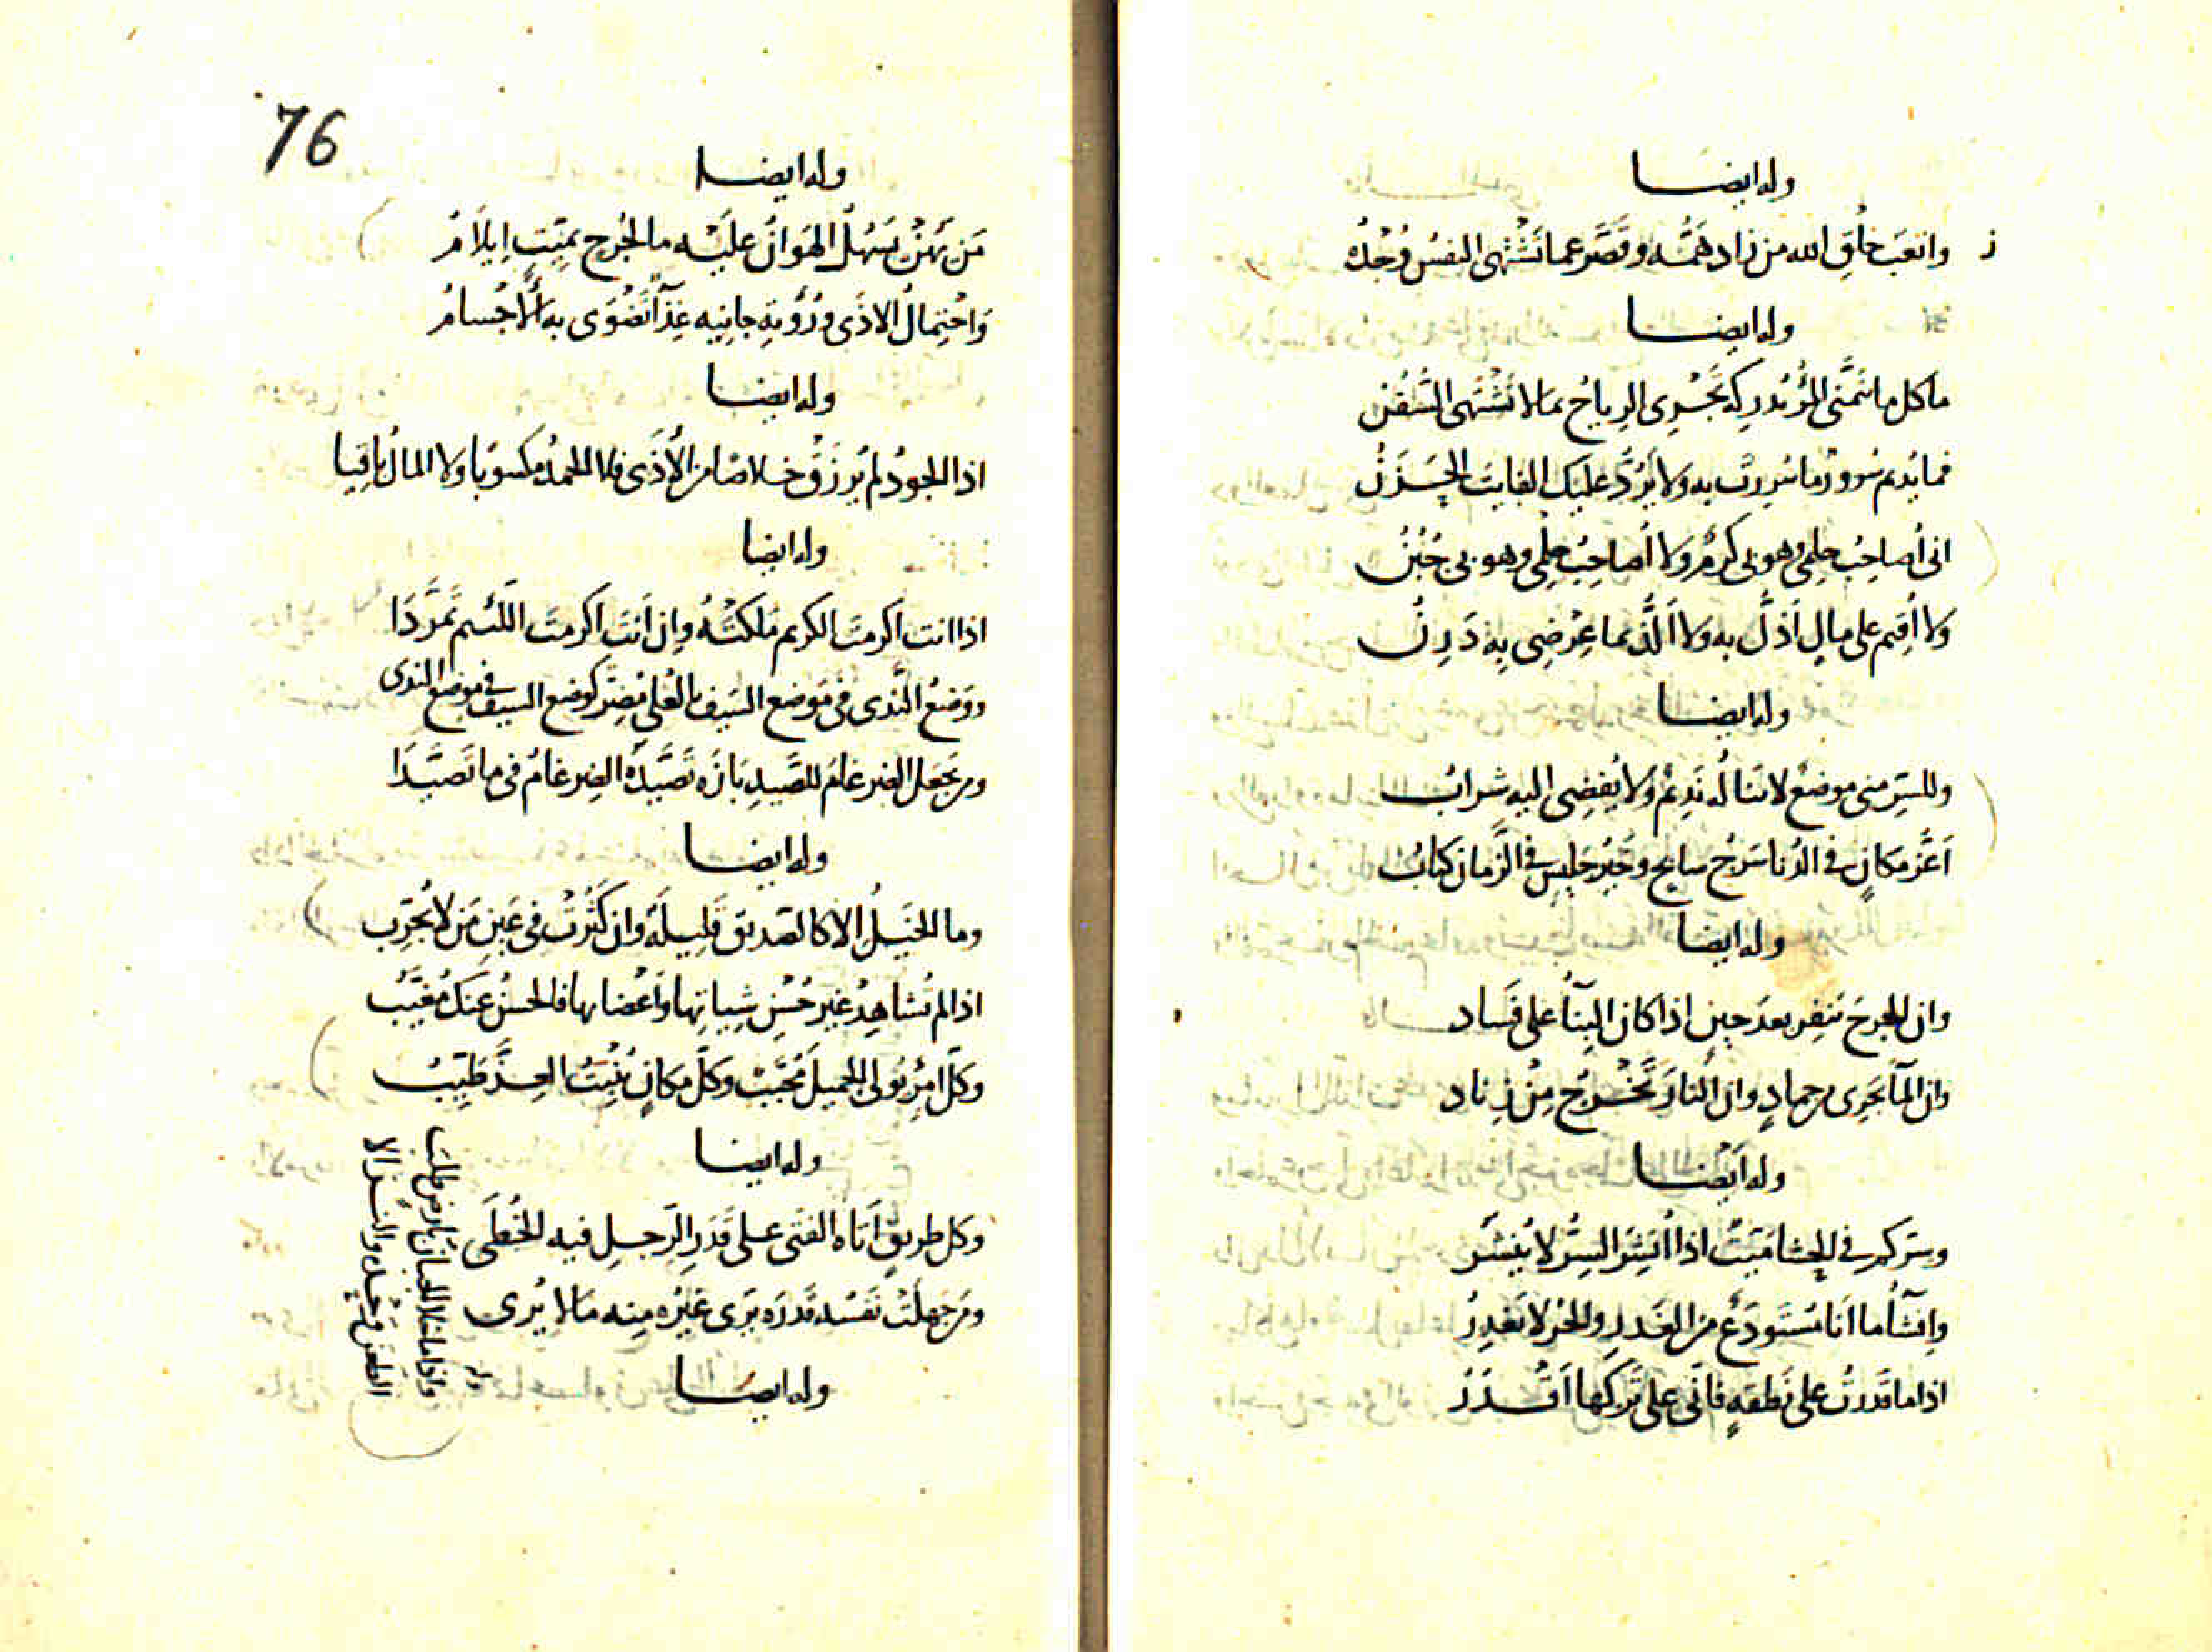 وله ايضا
ز واتعَبُ خلقِ الله من زاد هَمُّه وقَصَّر عما تَشْتهى النفسُ وُجْدُه
وله ايضا
ما كل ما يتمنى المرْؤُ يُدركه تَجْرِى الرِياحُ بمَا لا تَشْتَهى السُّفُن
فما يُديم سُرورٌ ما سُرِرتَ به ولا يَرُدُّ عليك الفايتَ الحَزَنُ
انى أُصاحِبُ حِلمى وهو بى كرَمٌ ولا أُصاحِبُ حِلمى وهو بى جُبُنُ
ولا أُقيم على مالٍ اَذلُّ به ولا اَلَذُّ بما عِرْضِى بِه دَرِنُ
وله ايضا
وللسِرِّ منى موضعٌ لا يَنالُه نَديمٌ ولا يُفضِى اليه شرابُ
اَعَزُّ مكانٍ فى الدُنا سَرجُ سابحٍ وخَيرُ جَليسٍ فى الزَمان كتابُ
وله ايضا
وان الجرحَ ينفِر بعدَ حينٍ اذا كان البِنآُ على فَساد
وان المآَ يجرِى من جمادٍ وان النارَ تَخْرُج مِنْ زِناد
وله اَيْضا
وسِرّكم فى الحِشا مَيّتٌ اذا اُنشِرَ السِرُّ لا يُنشَر
وافشآُ ما اَنا مُستَودَعٌ من الغَدرِ والحُر لا يَغدِرُ
اذا ما قدرتُ على نَطقةٍ فانى على تَركها اَقْدَرُ
76
وله ايضا
مَن يَهُنْ يَسْهُلُ الهَوَانُ عليْه ما لجُرحٍ بميّتٍ اِيلامُ
وَاحْتِمالُ الاذَى ورُؤيةِ جانيِه غِذآٌ تَضْوَى به الأجْسامُ
وله ايضا
اذا الجودُ لم يُرزَقْ خلاصًا من الأذَى فلا الحمدُ مكسوبًا ولا المالُ باقِيا
وله ايضا
اذا انت اكرمتَ الكريم مَلكْتَهُ وان اَنتَ اكرمتَ اللّئيم تَمَرَّدَا
ووَضعُ النَّدى فى مَوضع السَيف بالعُلى مُضِرٌّ كوضع السيف فى موضع الندى
ومن يَجعَل الضِرغامَ للصَّيدِ بَازَه تَصَيَّدَهُ الضِرغامُ فى ما تَصَيَّدَا
وله ايضا
وما الخَيلُ الا كالصَديق قَليلَةٌ وان كَثُرَتْ فى عَينِ مَن لا يُجَرِّب
اذا لم تُشاهِدْ غيرَ حُسْنِ شِياتِها وَاَعْضائها فالحسنُ عنك مُغَيَّبُ
وكلّ امرِئٍ يُولى الجَميلَ مُحَبَّبٌ وكلّ مكانٍ يُنْبِتُ العِزَّ طَيِّبُ
وله ايضا
وكل طريقٍ اَتاه الفتَى على قَدَرِ الرَجلِ فيه الخُطَى
ومَن جَهِلَتْ نَفسُه قَدرَه يَرَى غَيْرُه مِنه مَا لا يُرى
وله ايضا
وله
واذا ما خلا الجبان بارض طلب
الطعن وَحْده والنزالا